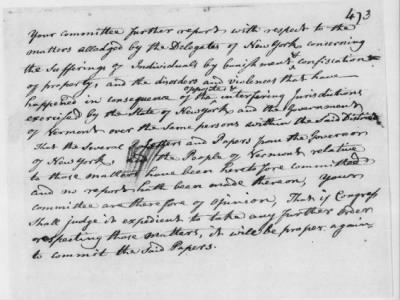 473
Your Committee further report with respect to the
matters alledged by the Delegates of New York concerning
the Sufferings of Individuals by banishment & confiscation
of property, and the disorders and violences that have
happened in consequence of the opposite & interfering Jurisdictions
exercised by the State of New York and the Government
of Vermont over the Same persons within the Said District
That the Several Letters and Papers from the Governor
of New York the People of Vermont relative
to those matters have been heretofore committed
and no report hath been made thereon, Your
committee are therefore of opinion, That if Congress
Shall judge it expedient to take any further order
respecting those matters, it will be proper again
to commit the Said Papers.